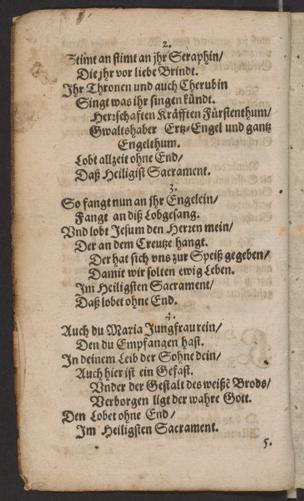 2.
Stimt an stimt an jhr Seraphin/
Die jhr vor liebe Brindt.
Ihr Thronen und auch Cherubin
Singt was ihr singen kündt.
Herrschafften Kräfften Fürstenthum/
Gwaltshaber Ertz-Engel und gantz
Engelthum.
Lobt allzeit ohne End/
Daß Heiligist Sacrament.
3.
So fangt nun an jhr Engelein/
Fangt an diß Lobgesang.
Vnd lobt Jesum den Herren mein/
Der an dem Creutze hangt.
Der hat sich vns zur Speiß gegeben/
Damit wir solten ewig Leben.
Im Heiligsten Sacrament/
Daß lobet ohne End.
4.
Auch du Maria Jungfrau rein/
Den du Empfangen hast.
In deinem Leib der Sohne dein/
Auch hier ist ein Gefast.
Vnder der Gestalt des weisse Brods/
Verborgen ligt der wahre Gott.
Den Lobet ohne End/
Im Heiligsten Sacrament.
5.